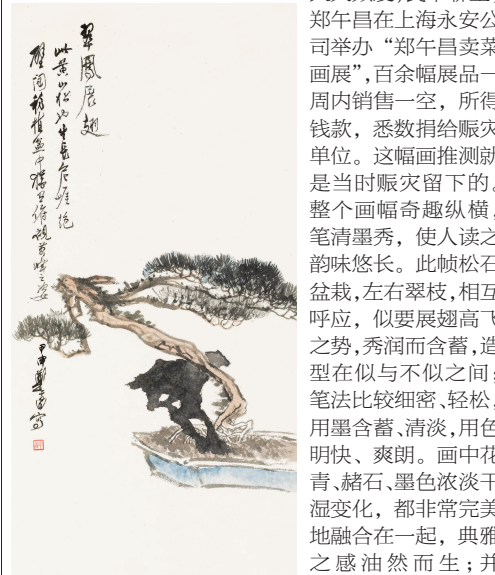 翠鳳展翅
此黄山松也生長危崖絶
壁間移植盆中
甲申
郑午昌在上海永安公
司举办“郑午昌卖菜
画展”,百余幅展品一
周内销售一空，所得
钱款，悉数捐给赈灾
单位。这幅画推测就
是当时赈灾留下的。
整个画幅奇趣纵横，
笔清墨秀，使人读之
韵味悠长。此帧松石
盆栽,左右翠枝,相互
呼应，似要展翅高飞
之势,秀润而含蓄,造
型在似与不似之间；
笔法比较细密、轻松，
用墨含蓄、清淡,用色
明快、爽朗。画中花
青、赭石、墨色浓淡干
湿变化，都非常完美
地融合在一起，典雅
之感油然而生；并